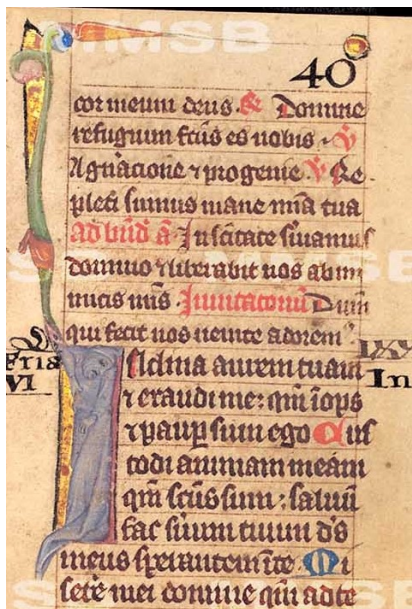 40
cor meum deus. R Domine
refugium fcus es nobis. V
A gnacione ⁊ progenie V Re
pleti sumus mane mia tua
ad bnd a Jn scitate suiamus
domino ⁊ liberabit nos ab ini
micis nris Jnuitatoriu Dum
qui fecit nos uenite adorem
Feria
VI
LXXV
In
Jnclina aurem tuam
⁊ exaudi me: qm iops
⁊ paup sum ego Cus
todi animam meam
qm scus sum: saluu
fac suum tuum ds
meus sperantem i te Mi
sere mei domine qm ad te